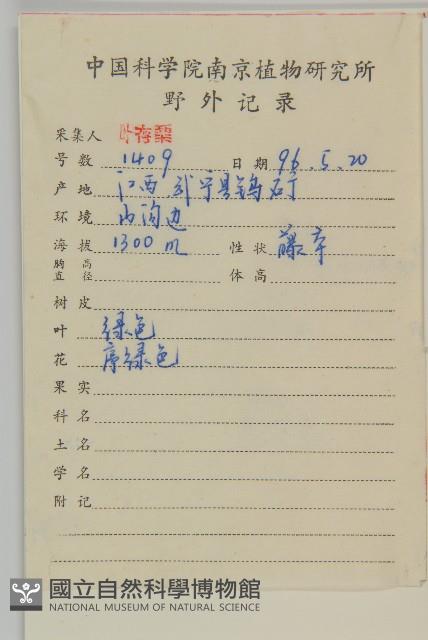 中国科学院南京植物研究所
野外记录
采集人
号数 1409 日期 96.5.20
产地 江西武宁县钨矿
环境 山沟边
海拔 1300 m 性状 藤本
胸高直径 体高
树皮
叶 绿色
花 序绿色
果实
科名
土名
学名
附记
國立自然科學博物館
NATIONAL MUSEUM OF NATURAL SCIENCE